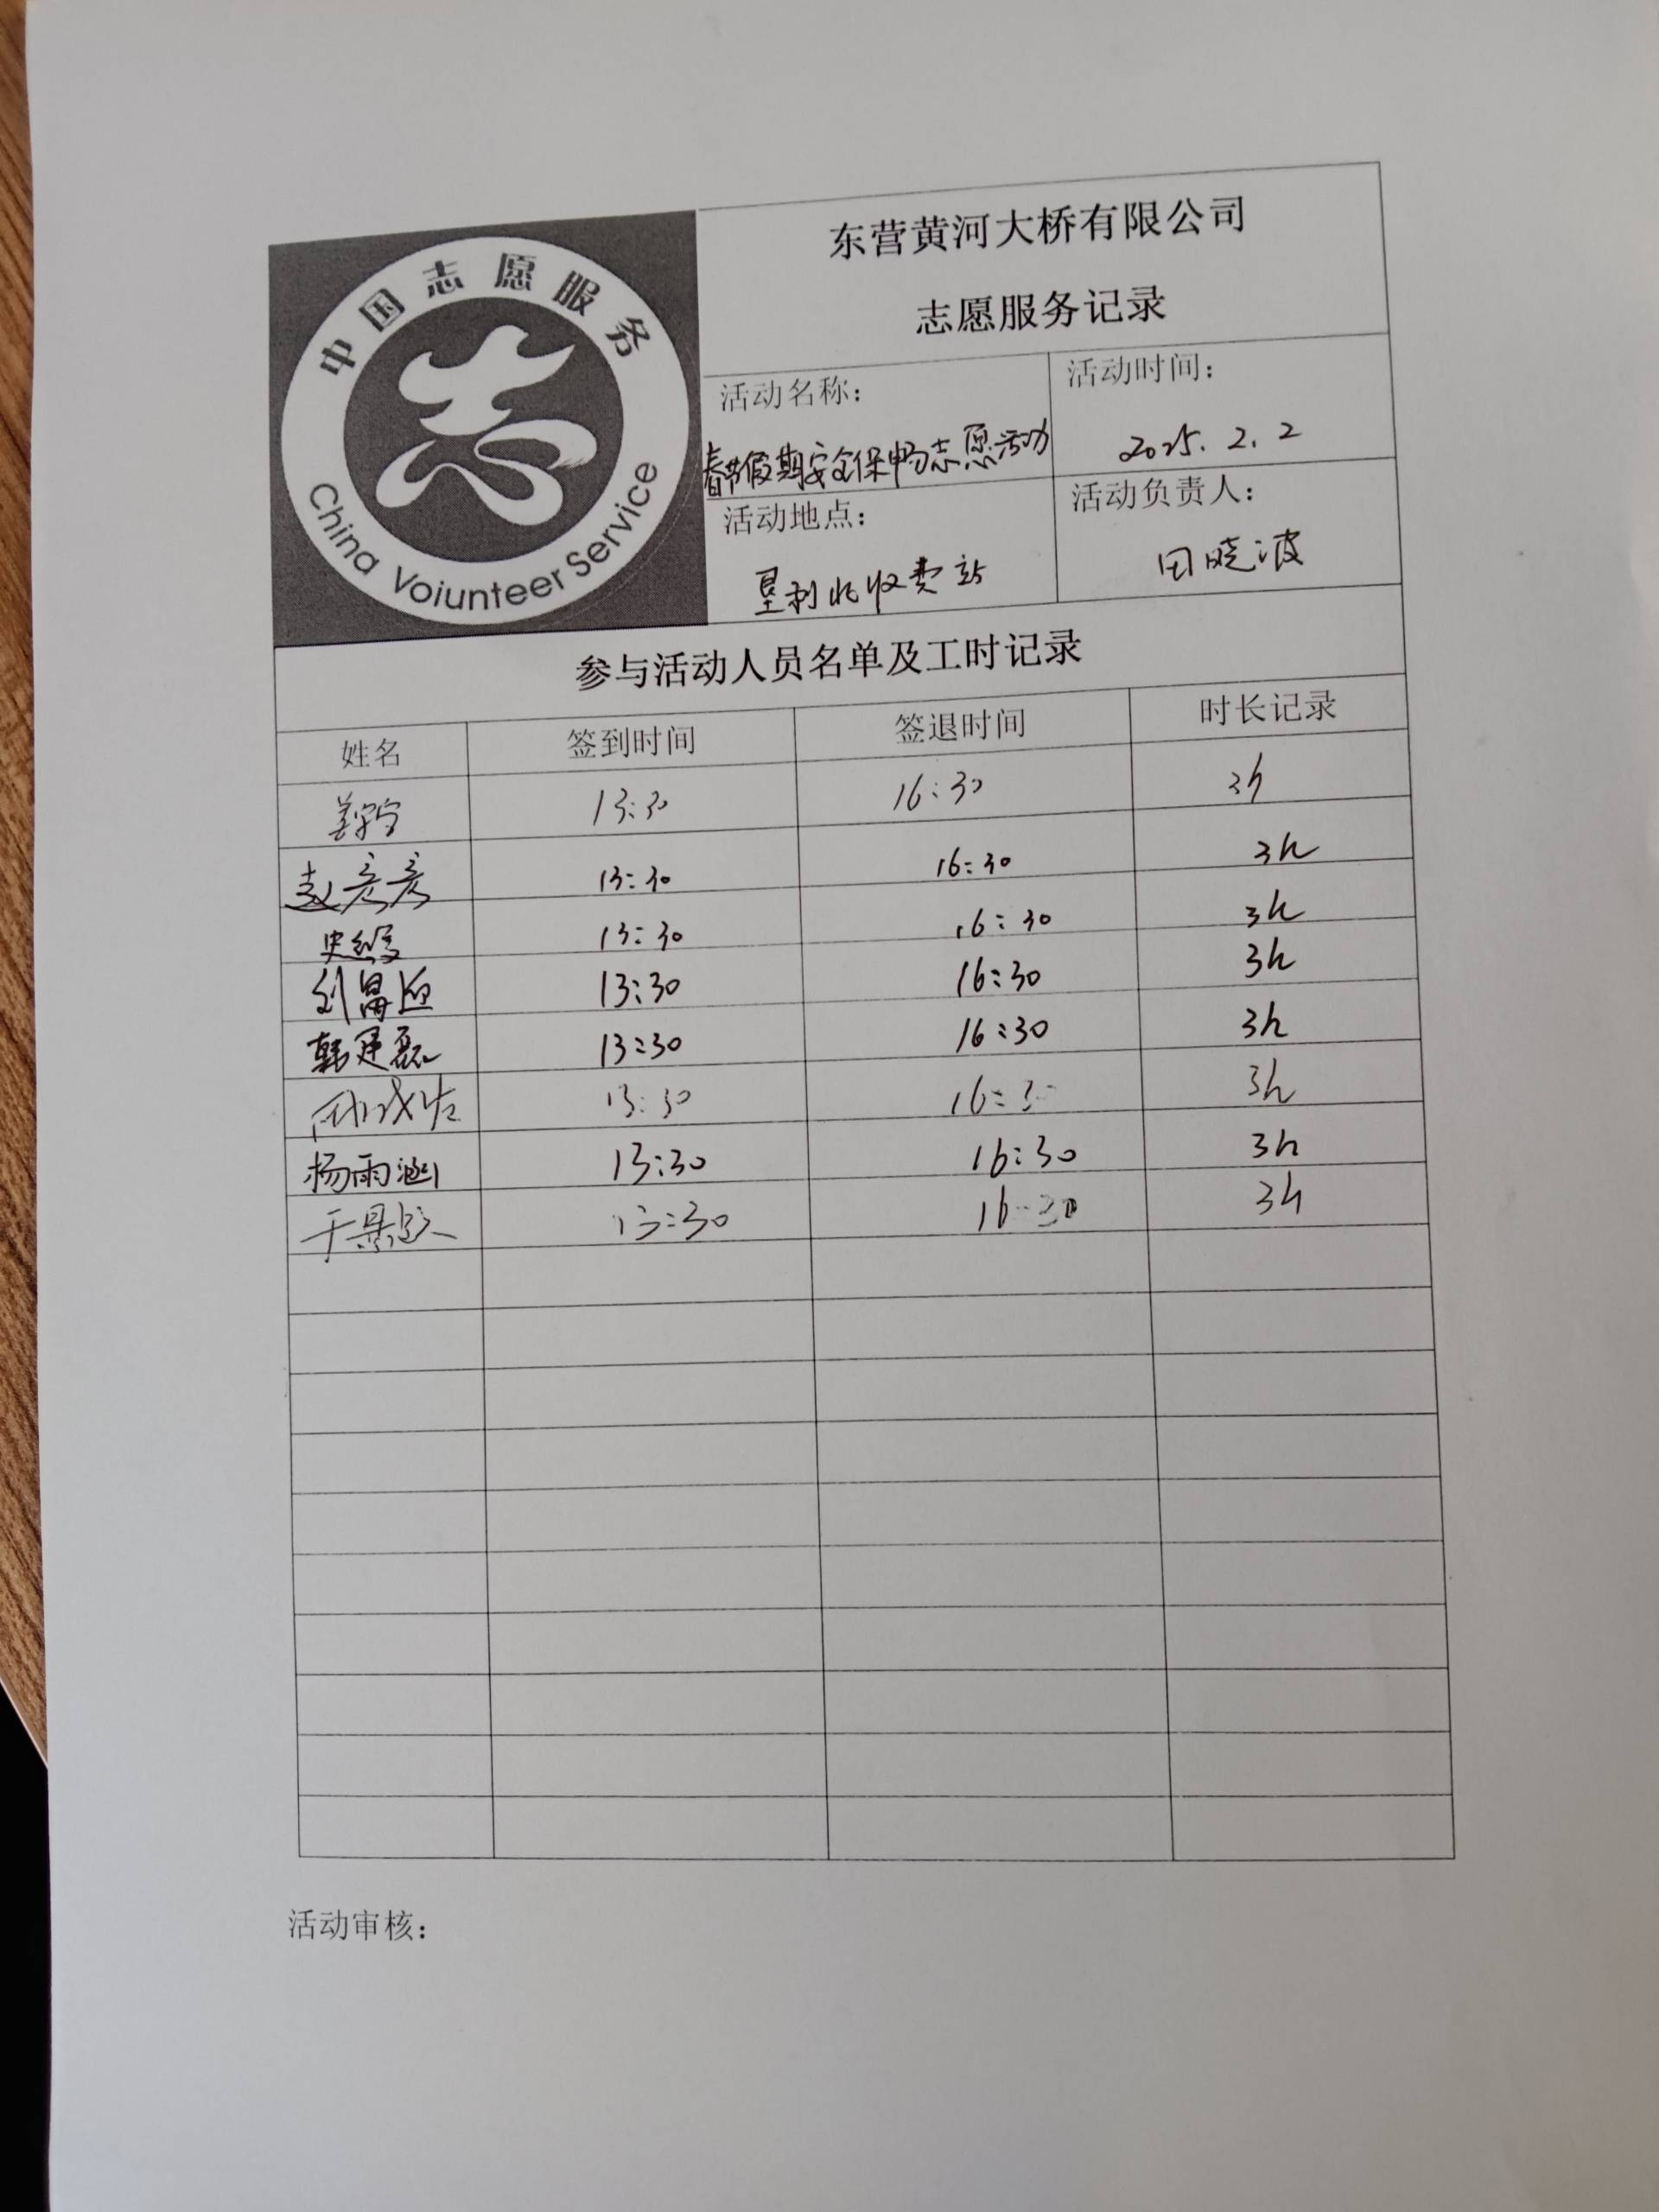 中国志愿服务
China Voiunteer Service
东营黄河大桥有限公司
志愿服务记录
活动名称：
春节假期安全保畅志愿活动
活动时间：
2025.2.2
活动地点：
垦利北收费站
活动负责人：
田晓波
参与活动人员名单及工时记录
姓名 签到时间 签退时间 时长记录
13:30 16:30 3h
赵彦彦 13:30 16:30 3h
史 13:30 16:30 3h
刘 13:30 16:30 3h
韩建磊 13:30 16:30 3h
13:30 16:3 3h
杨雨涵 13:30 16:30 3h
于 13:30 16:30 3h
活动审核：